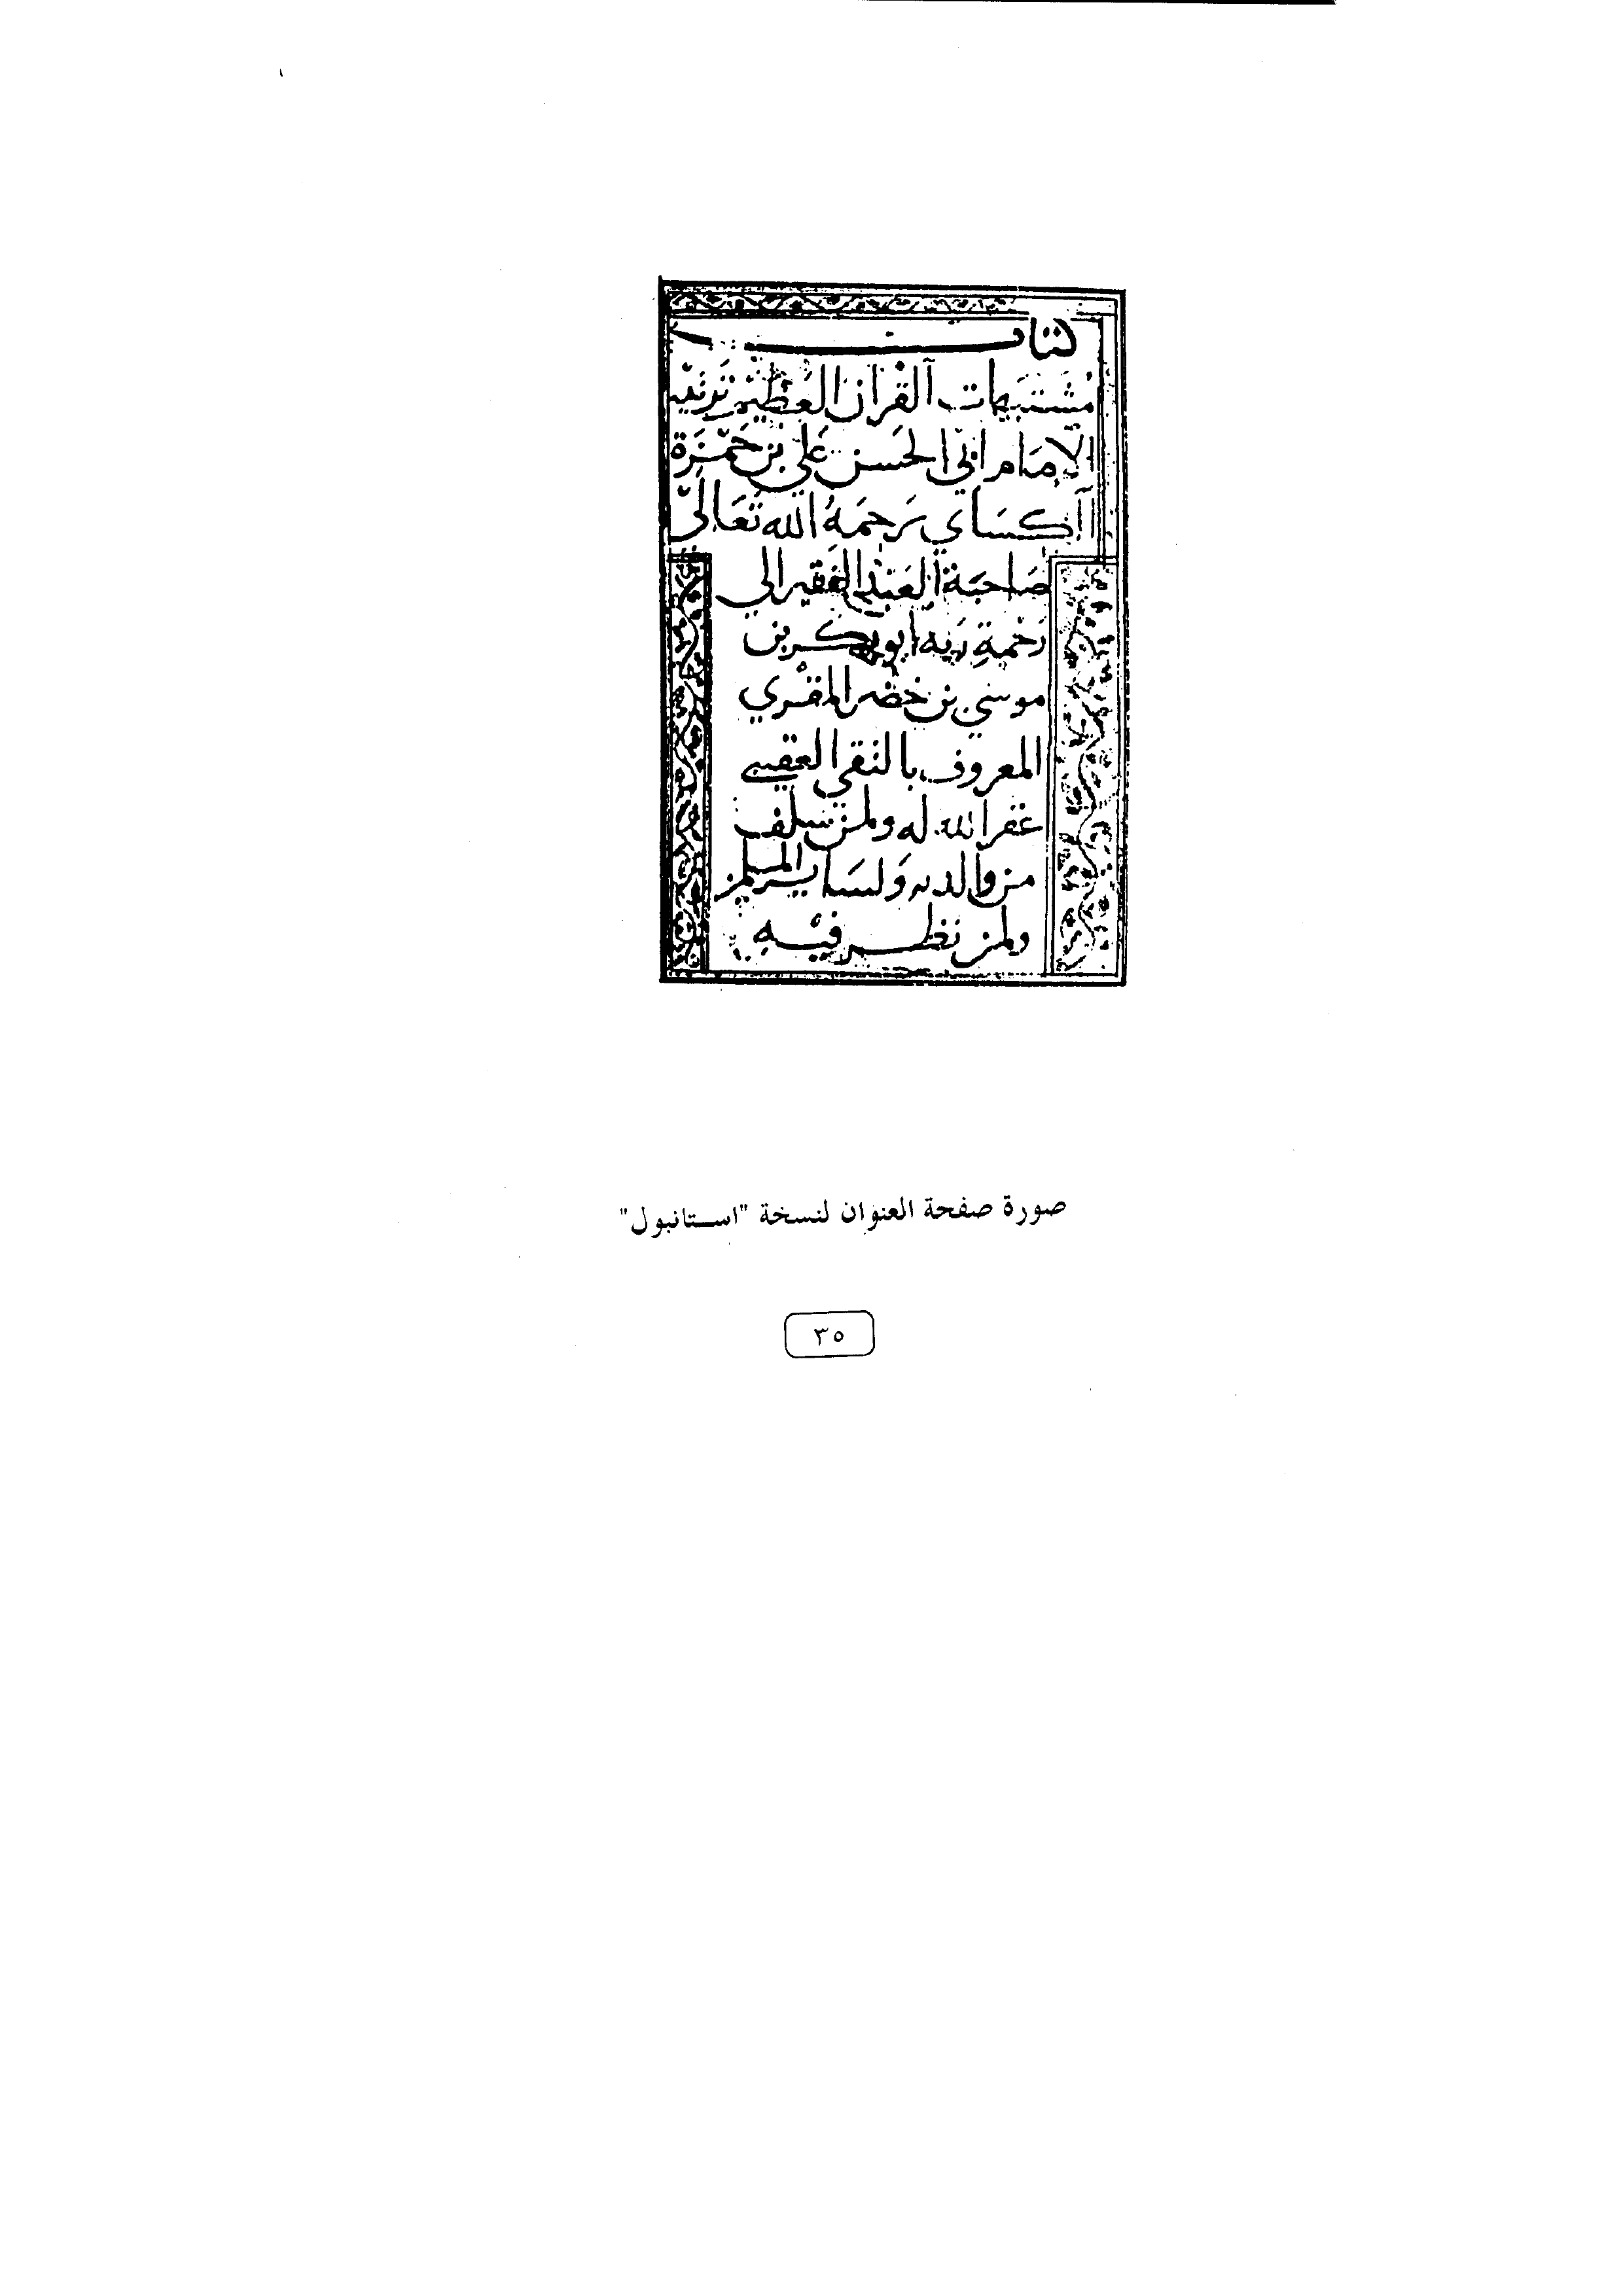 كتاب
مُشتَبِهَات اَلقُرآن العَظِيْم تَرتيب
الإمَام أبي الحَسن عَلي بن حَمْزَة
الكسَاي رَحمَهُ الله تَعَالىٰ
صَاحبَة العَبْد الفَقير الي
رَحْمةِ رَبه أبو بكر بن
موسي بن خضر المقري
المعروف بالنقي
غفر الله له ولمن سلف
من والديه وَلسَاير المسلمين
ولمن نظر فيْهِ
صورة صفحة العنوان لنسخة "استانبول"
٣٥